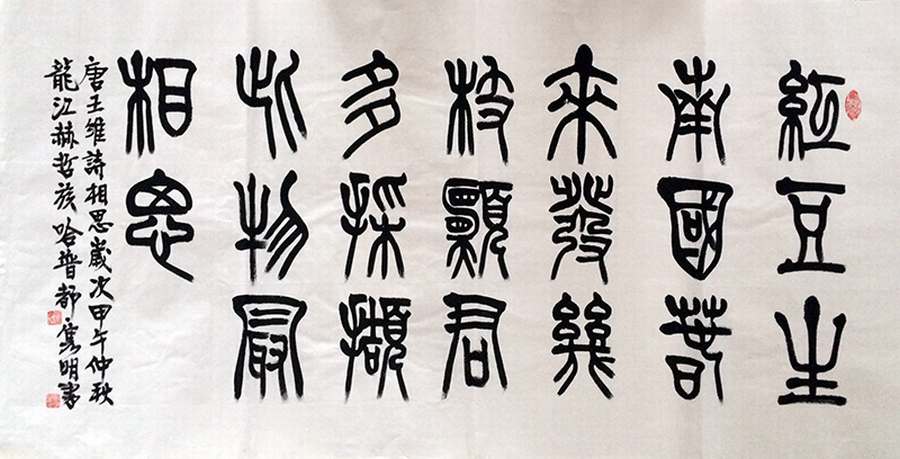 紅豆生
南國春
來發幾
枝願君
多採擷
此物最
相思
唐王維詩相思歲次甲午仲秋
龍江赫哲族哈普都雋明